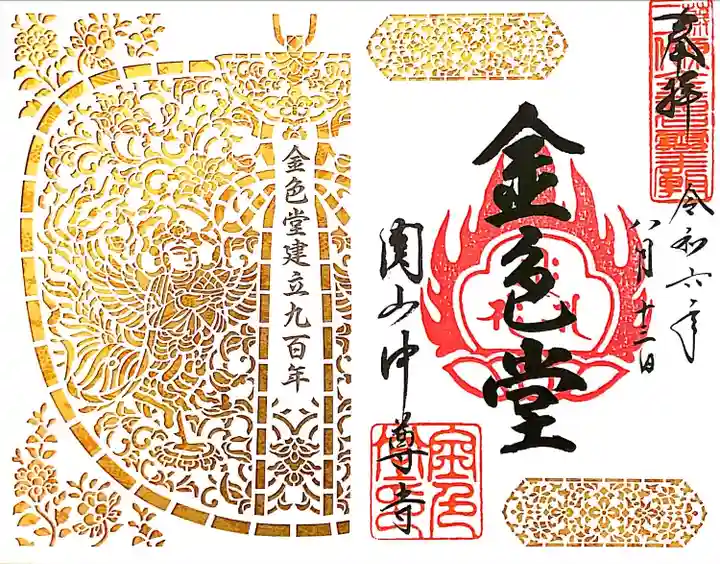 奉拝
令和六年
八月十二日
金色堂
関山中尊寺
金色堂建立九百年